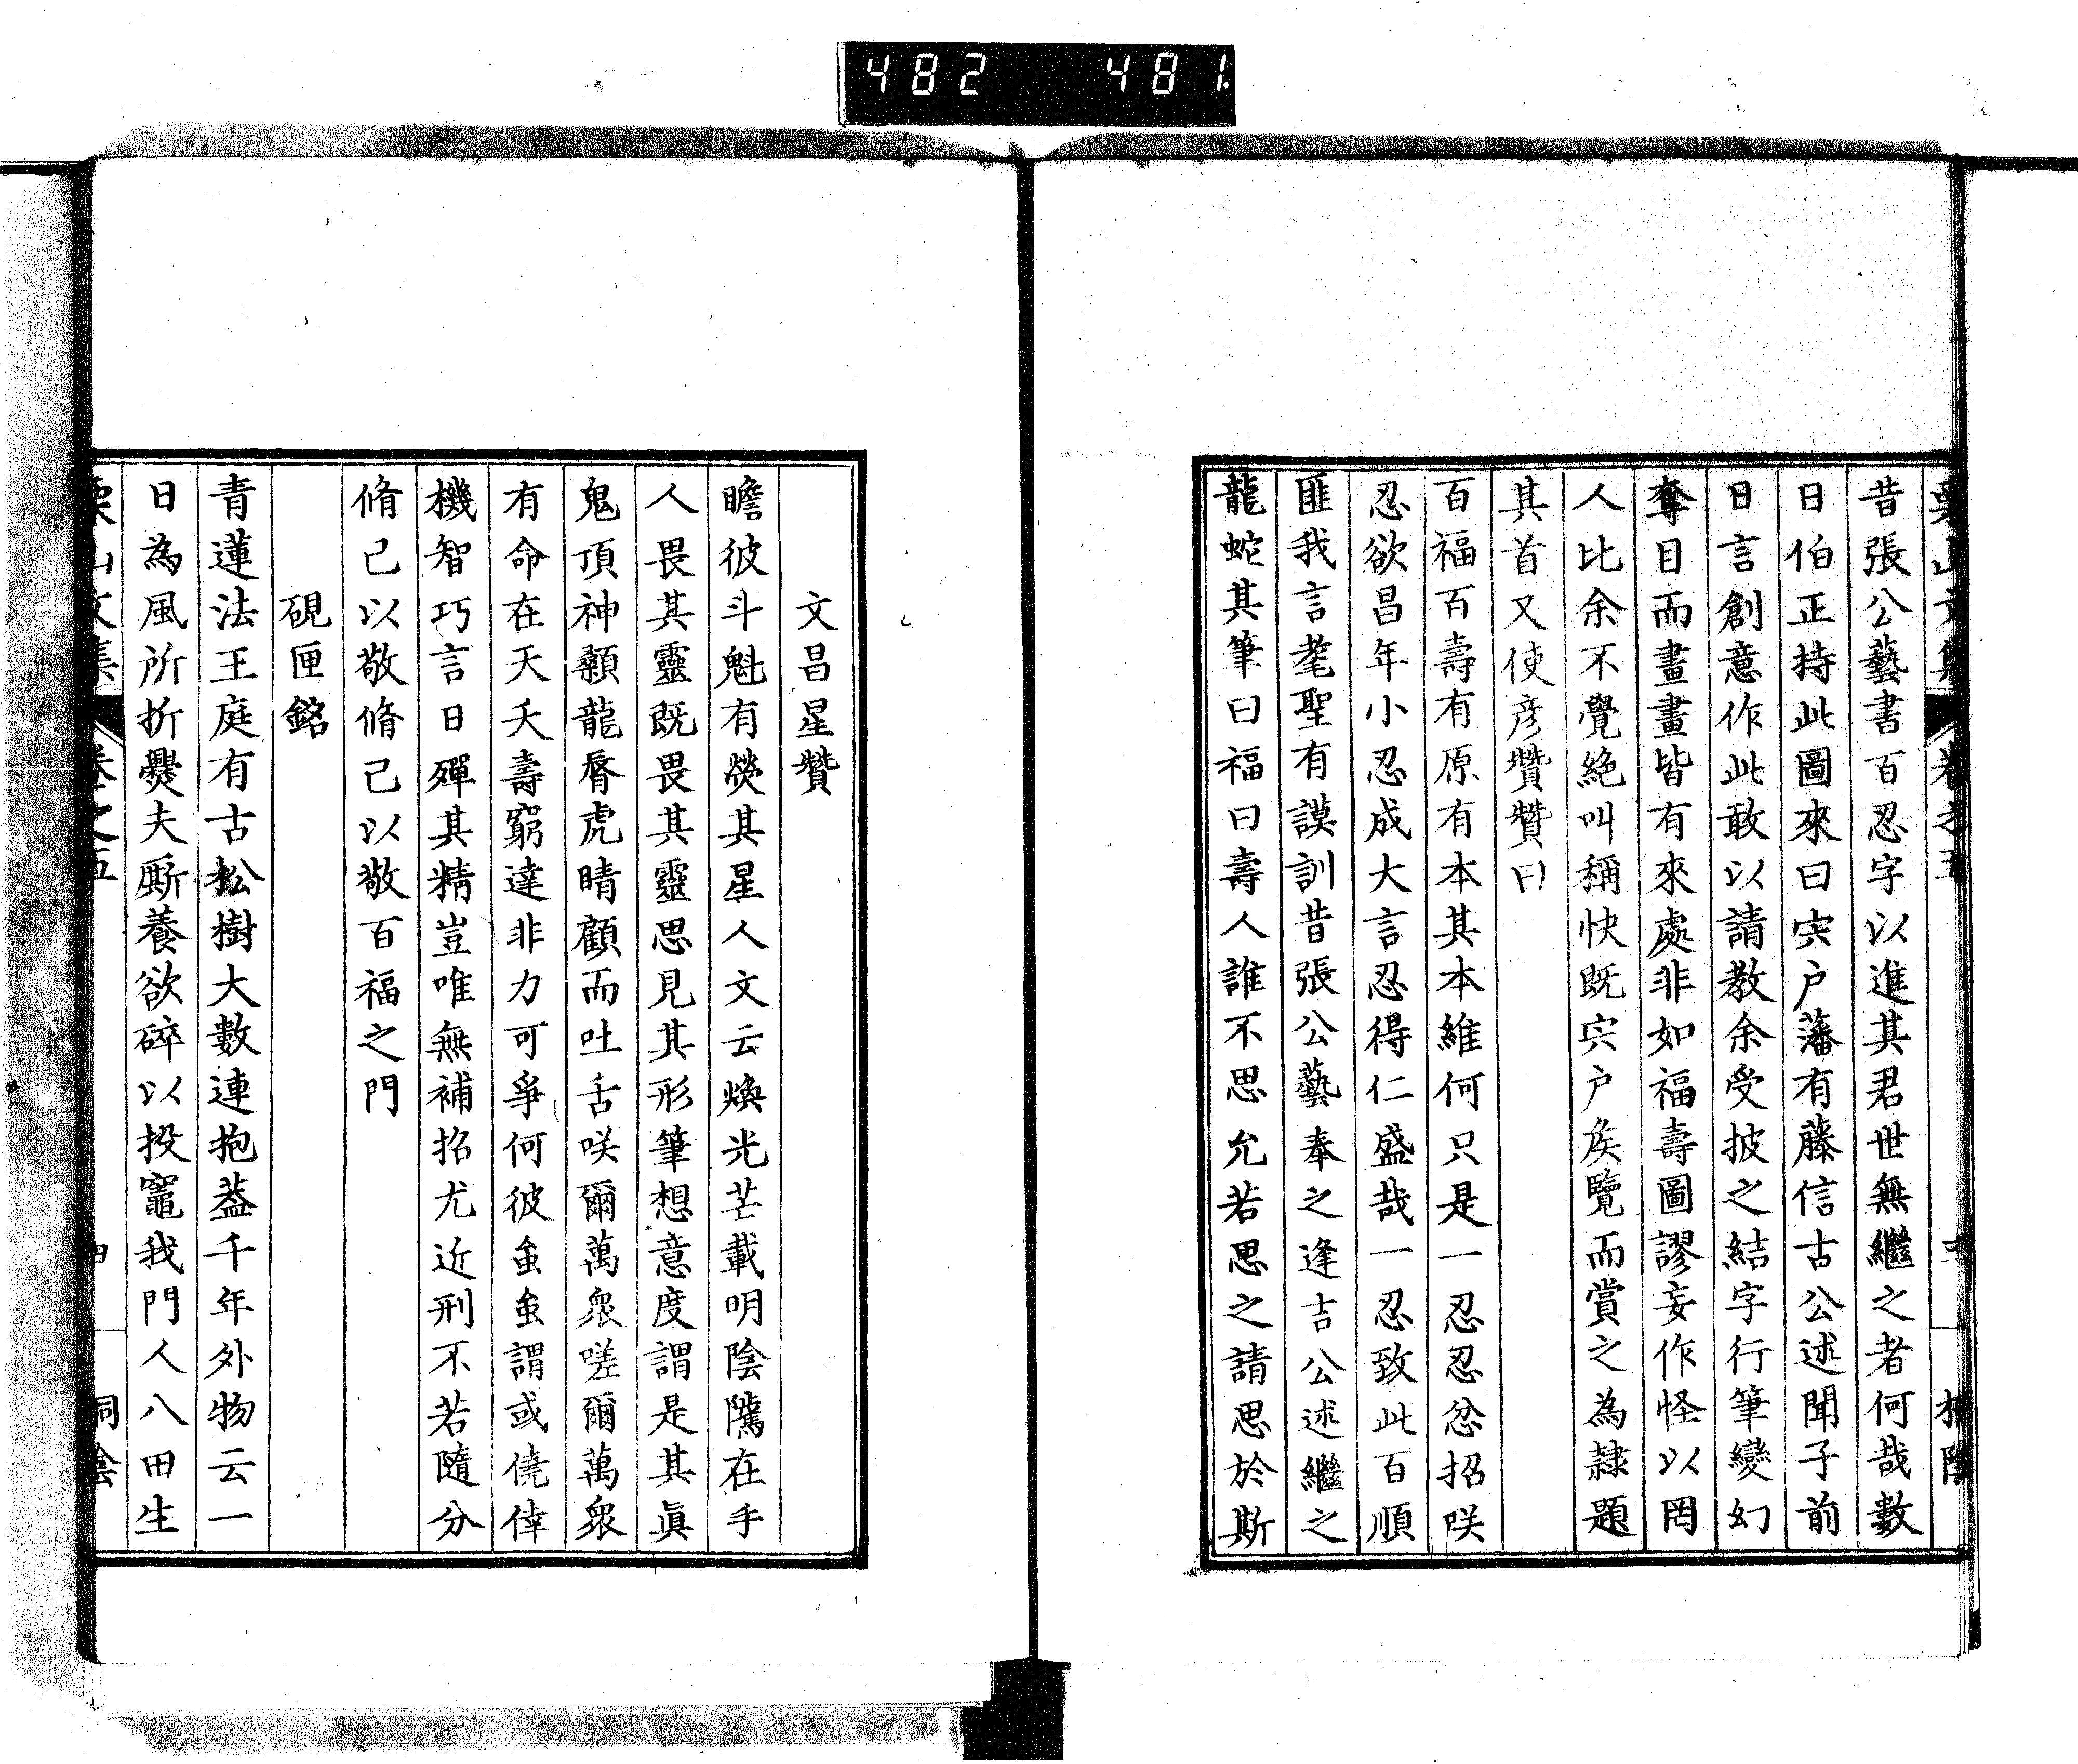 482 481
昔張公藝書百忍字以進其君世無繼之者何哉數
日伯正持此圖來曰宍戶藩有藤信古公述聞子前
日言創意作此敢以請教余受披之結字行筆變幻
奪目而畫畫皆有來處非如福壽圖謬妄作怪以罔
人比余不覺絶叫稱快既宍戶矦覽而賞之為隷題
其首又使彦贊贊曰
百福百壽有原有本其本維何只是一忍忍忿招咲
忍欲昌年小忍成大言忍得仁盛哉一忍致此百順
匪我言耄聖有謨訓昔張公藝奉之逢吉公述繼之
龍蛇其筆曰福曰壽人誰不思允若思之請思於斯
文昌星贊
瞻彼斗魁有熒其星人文云煥光芒載明陰隲在手
人畏其靈既畏其靈思見其形筆想意度謂是其眞
鬼頂神顙龍脣虎睛顧而吐舌咲爾萬衆嗟爾萬衆
有命在天夭壽窮達非力可爭何彼䖝䖝謂或僥倖
機智巧言日殫其精豈唯無補招尤近刑不若隨分
脩己以敬脩己以敬百福之門
硯匣銘
青蓮法王庭有古松樹大數連抱葢千年外物云一
日為風所折爨夫厮養欲碎以投竈我門人八田生
栗山文集 卷之五 四 桐陰